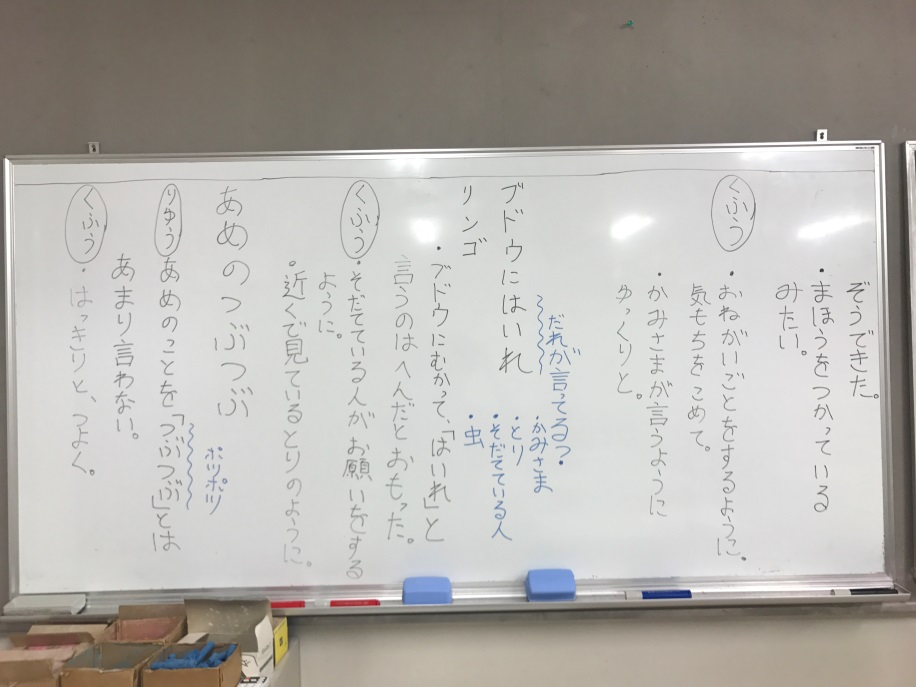 ぞうできた。
・まほうをつかっている
みたい。
くふう
・おねがいごとをするように。
気もちをこめて。
・かみさまが言うように
ゆっくりと。
だれが言ってるっ・
・かみさま
・とり
・そだてている人
・虫
ブドウにはいれ
リンゴ
・ブドウにむかって、「はいれ」と
言うのはへんだとおもった。
くふう
・そだてている人がお願いをする
ように。
・近くで見ているとりのように。
あめのつぶつぶ
ポツポツ
りゆう
あめのことを「つぶつぶ」とは
あまり言わない。
くふう
・はっきりと、つよく。